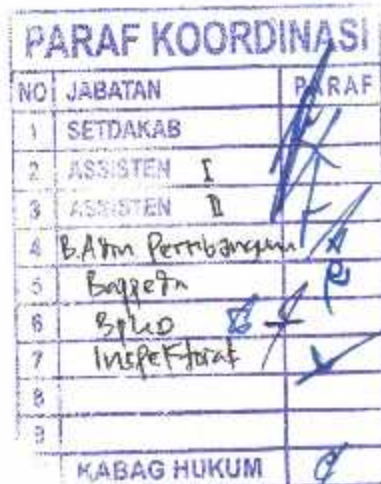 PARAF KOORDINASI
NO JABATAN PARAF
1 SETDAKAB
2 ASSISTEN I
3 ASSISTEN II
4 B. Adm Pembangunan
5 Bappeda
6
7 Inspektorat
8
9
KABAG HUKUM